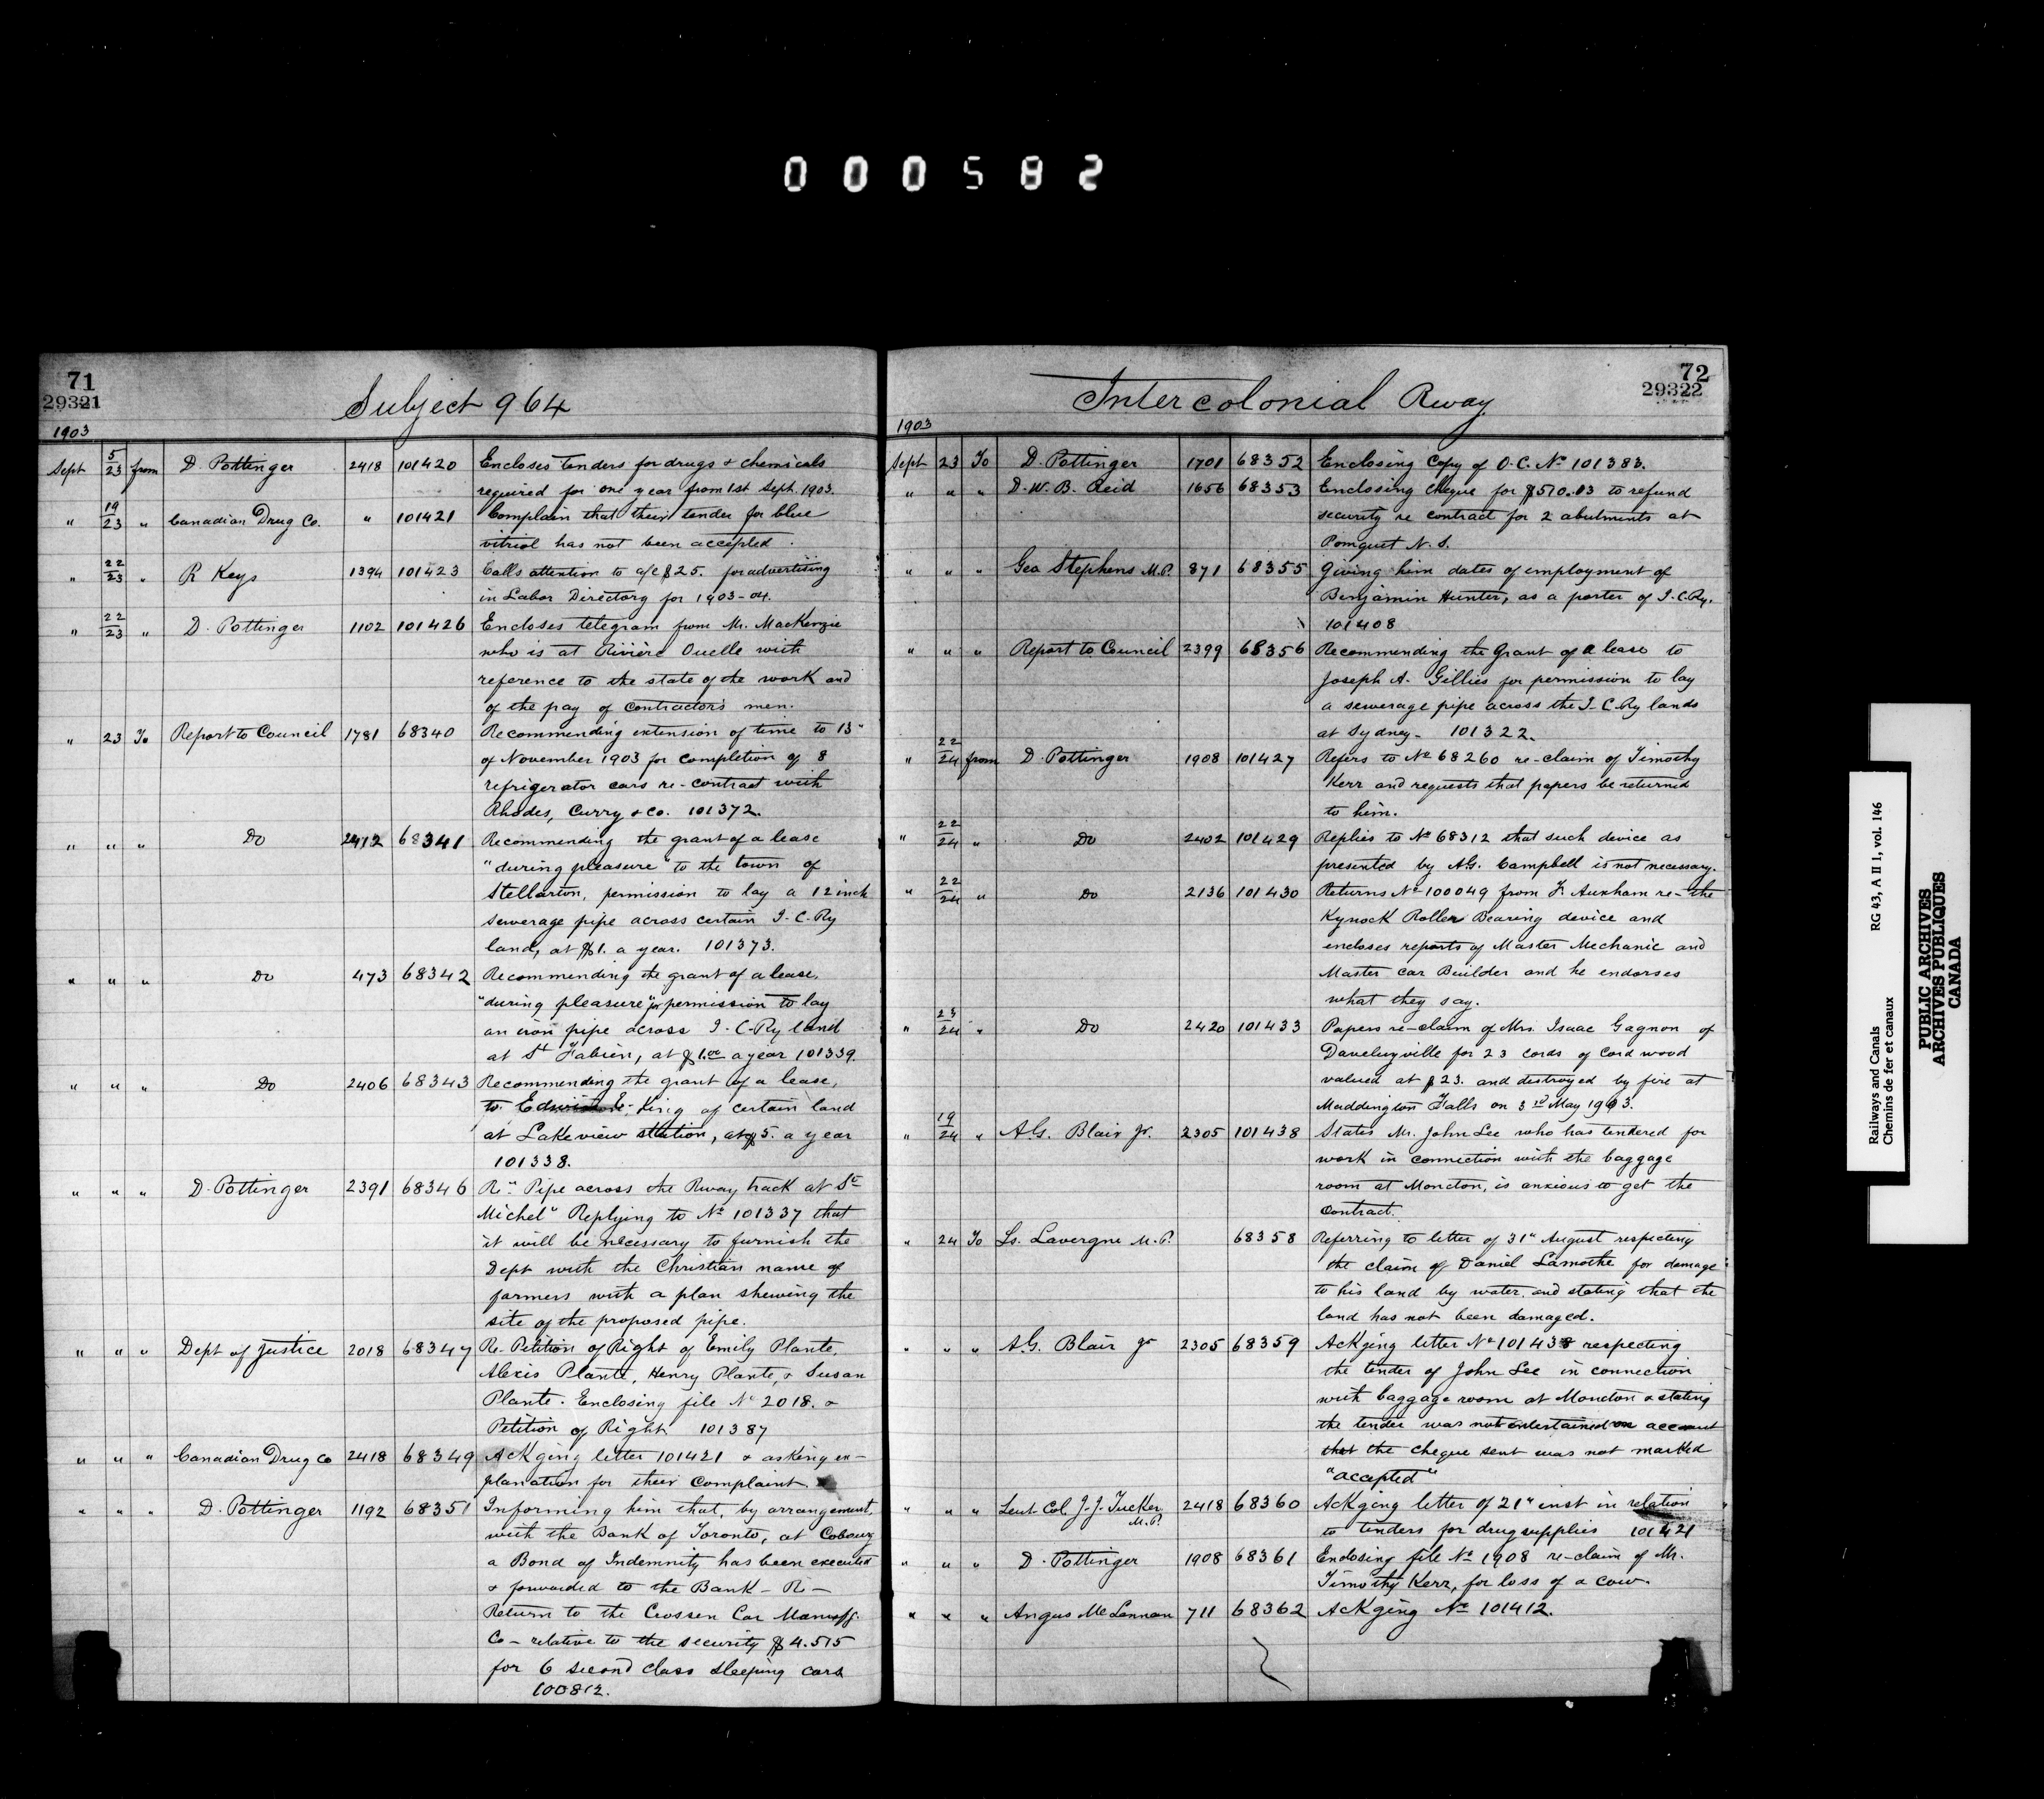 000582
71
29321
Subject 964
1903
Sept 5/23 from D. Pottinger 2418 101420 Encloses tenders for drugs & chemicals
required for one year from 1st Sept. 1903.
" 19/23 " Canadian Drug Co. " 101421 Complain that their tender for blue
vitriol has not been accepted.
" 22/23 " R Keys 1394 101423 Calls attention to a/c $25. for advertising
in Labor Directory for 1903-04.
" 22/23 " D. Pottinger 1102 101426 Encloses telegram from Mr. MacKenzie
who is at Rivière Ouelle with
reference to the state of the work and
of the pay of contractor's men.
" 23 To Report to Council 1781 68340 Recommending extension of time to 15"
of November 1903 for completion of 8
refrigerator cars re-contract with
Rhodes, Curry & Co. 101372.
" " " Do 2412 68341 Recommending the grant of a lease
"during pleasure" to the town of
Stellarton, permission to lay a 12 inch
sewerage pipe across certain I-C-Ry
land, at $1. a year. 101373.
" " " Do 473 68342 Recommending the grant of a lease,
"during pleasure" for permission to lay
an iron pipe across I-C-Ry land
at St Fabien, at $1.00 a year 101339.
" " " Do 2406 68343 Recommending the grant of a lease,
to King of certain land
at Lakeview station, at $5. a year
101338.
" " " D. Pottinger 2391 68346 Re "Pipe across the Rway track at St
Michel" Replying to No 101337 that
it will be necessary to furnish the
Dept with the Christian name of
farmers with a plan shewing the
site of the proposed pipe.
" " " Dept of Justice 2018 68347 Re-Petition of Right of Emily Plante,
Alexis Plante, Henry Plante, & Susan
Plante. Enclosing file No 2018. &
Petition of Right 101387
" " " Canadian Drug Co 2418 68349 Ackging letter 101421 & asking ex-
planation for their complaint
" " " D. Pottinger 1192 68351 Informing him that, by arrangement,
with the Bank of Toronto, at Cobourg
a Bond of Indemnity has been executed
& forwarded to the Bank - Re -
Return to the Crossen Car Manufg.
Co - relative to the security $4.515
for 6 second class sleeping cars
100812.
72
29322
Intercolonial Rway
1903
Sept 23 To D. Pottinger 1701 68352 Enclosing Copy of O.C. No 101383.
" " " D. W. B. Reid 1656 68353 Enclosing cheque for $510.13 to refund
security re contract for 2 abutments at
Pomquet N.S.
" " " Geo Stephens M.P. 871 68355 Giving him dates of employment of
Benjamin Hunter, as a porter of I.C.Ry.
101408
" " " Report to Council 2399 68356 Recommending the Grant of a lease to
Joseph A. Gillies for permission to lay
a sewerage pipe across the I-C-Ry lands
at Sydney- 101322.
" 22/24 from D. Pottinger 1908 101427 Refers to No 68260 re-claim of Timothy
Kerr and requests that papers be returned
to him.
" 22/24 " Do 2402 101429 Replies to No 68312 that such device as
presented by A.G. Campbell is not necessary.
" 22/24 " Do 2136 101430 Returns No 100049 from F. re-the
Kynock Roller Bearing device and
encloses reports of Master Mechanic and
Master Car Builder and he endorses
what they say.
" 23/24 " Do 2420 101433 Papers re-claim of Mrs. Isaac Gagnon of
Daveluyville for 23 cords of Cord wood
valued at $23. and destroyed by fire at
Maddington Falls on 3rd May 1903.
" 19/24 " A.G. Blair Jr. 2305 101438 States Mr. John Lee who has tendered for
work in connection with the baggage
room at Moncton, is anxious to get the
Contract.
" 24 To Ls. Lavergne M.P. 68358 Referring to letter of 31" August respecting
the claim of Daniel Lamothe for damage
to his land by water, and stating that the
land has not been damaged.
" " " A.G. Blair Jr 2305 68359 Ackging letter No 101438 respecting
the tender of John Lee in connection
with baggage room at Moncton & stating
the tender was not entertained on account
that the cheque sent was not marked
"accepted"
" " " Leut Col J.J. Tucker M.P. 2418 68360 Ackging letter of 21" inst in relation
to tenders for drug supplies 101421
" " " D. Pottinger 1908 68361 Enclosing file No 1908 re-claim of Mr.
Timothy Kerr, for loss of a cow.
" " " Angus McLennan 711 68362 Ackging No 101412.
Railways and Canals
Chemins de fer et canaux
RG 43, A II 1, vol. 146
PUBLIC ARCHIVES
ARCHIVES PUBLIQUES
CANADA